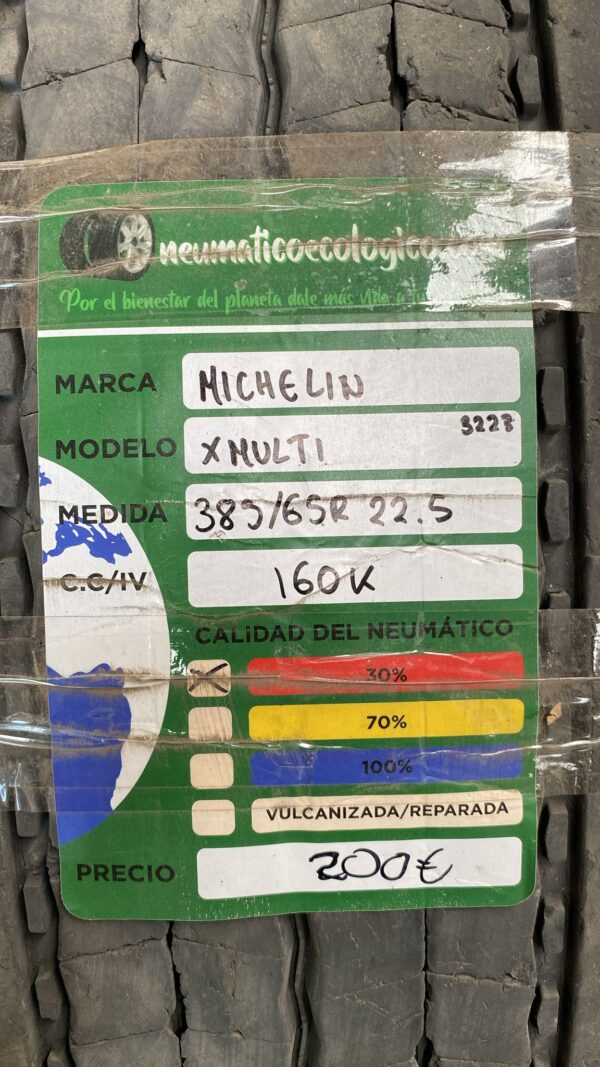 neumaticoecologico
Por el bienestar del planeta dale más vida a tu
MARCA MICHELIN
MODELO XMULTI 3223
MEDIDA 385/65R 22.5
C.C/IV 160K
CALIDAD DEL NEUMÁTICO
30%
70%
100%
VULCANIZADA/REPARADA
PRECIO 200€